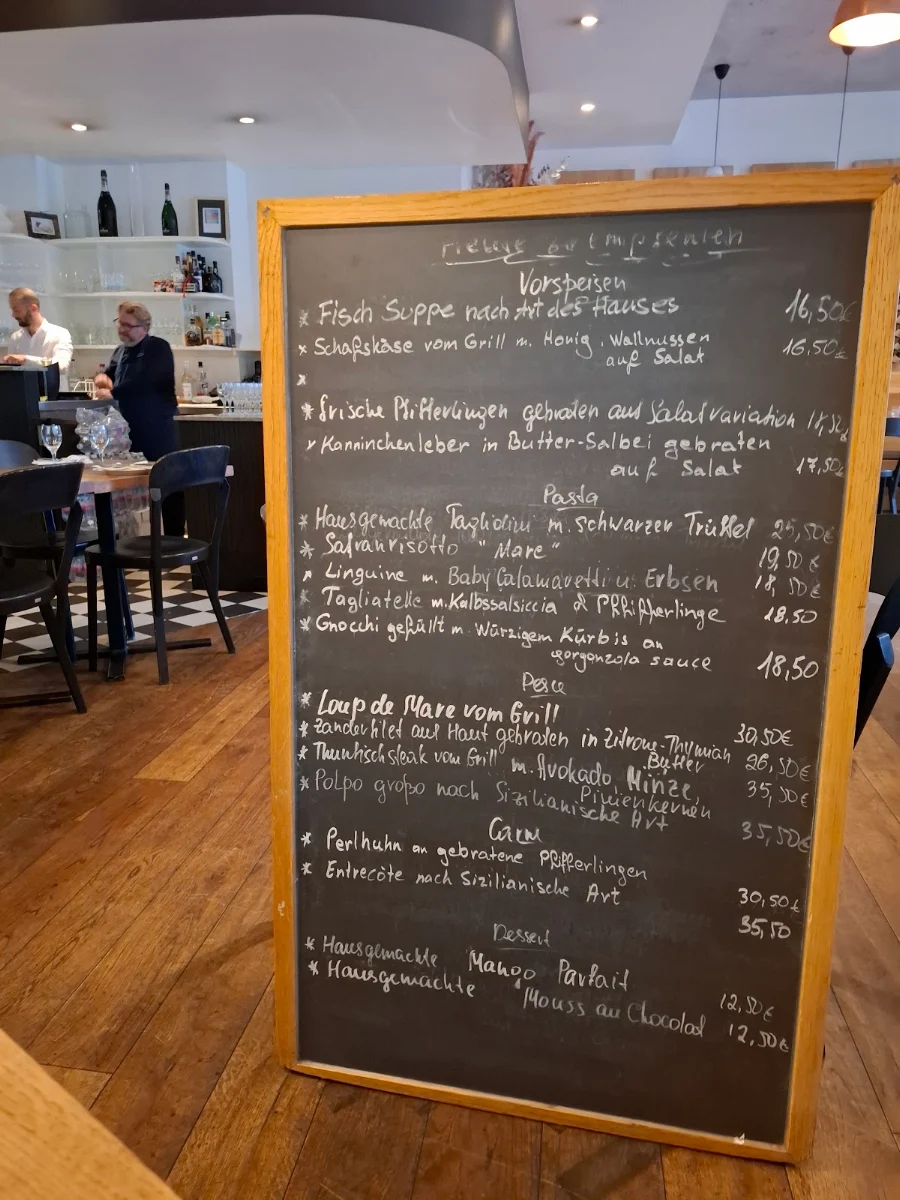 Vorspeisen
* Fisch Suppe nach Art des Hauses 16,50€
* Schafskäse vom Grill m. Honig, Wallnussen 16,50€
auf Salat
*
* frische Pfifferlingen gebraten auf Salatvariation
* Kanninchenleber in Butter-Salbei gebraten
auf Salat 17,50€
Pasta
* Hausgemachte Tagliolini m. schwarzer Trüffel 25,50€
* Safranrisotto "Mare" 19,50€
* Linguine m. Baby Calamaretti u. Erbsen 18,50€
* Tagliatelle m. Kalbssalsiccia & Pfifferlinge 18.50
* Gnocchi gefüllt m. Würzigem Kürbis an
gorgonzola sauce 18,50
Pesce
* Loup de Mare vom Grill 30,50€
* Zanderfilet auf Haut gebraten in Zitrone-Thymian
Butter 26,50€
* Thunfischsteak vom Grill m. Avokado, Minze, 35,50€
Pinienkernen
* Polpo großo nach Sizilianische Art 35,50€
Carne
* Perlhuhn an gebratene Pfifferlingen 30,50€
* Entrecôte nach Sizilianische Art 35,50
Dessert
* Hausgemachte Mango Parfait 12,50€
* Hausgemachte Mouss au Chocolad 12,50€